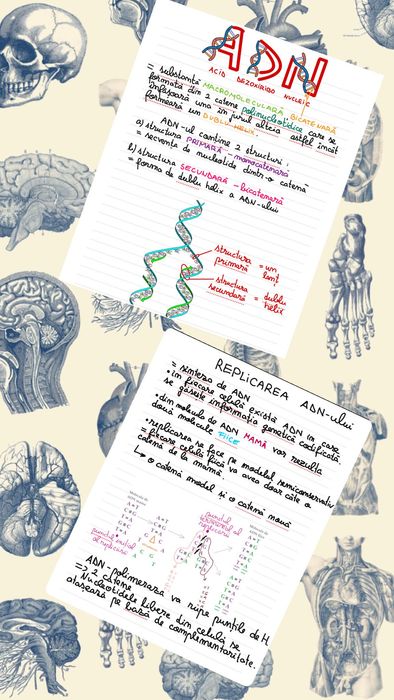 ADN
ACID DEZOXIRIBO NUCLEIC
= substanță MACROMOLECULARĂ, BICATENARĂ
formată din 2 catene polinucleotidice care se
înfășoară una în jurul alteia astfel încât
formează un DUBLU HELIX.
ADN-ul conține 2 structuri:
a) structura PRIMARĂ - monocatenară
= secvența de nucleotide dintr-o catenă
b) structura SECUNDARĂ - bicatenară
= forma de dublu helix a ADN-ului
structura primară = un lanț
structura secundară = dublu helix
REPLICAREA ADN-ului
= sinteza de ADN
• în fiecare celulă există ADN în care
se găsește informația genetică codificată.
• din molecula de ADN MAMĂ vor rezulta
două molecule FIICE
• replicarea se face pe modelul semiconservativ
= fiecare celulă fiică va avea doar câte o
catenă de la mumă
↳ o catenă model și o catenă nouă
punctul inițial al replicării
punctul al replicării
ADN-polimeraza va rupe punțile de H
=> 2 catene
Nucleotidele libere din celulă se
atașează pe bază de complementaritate.